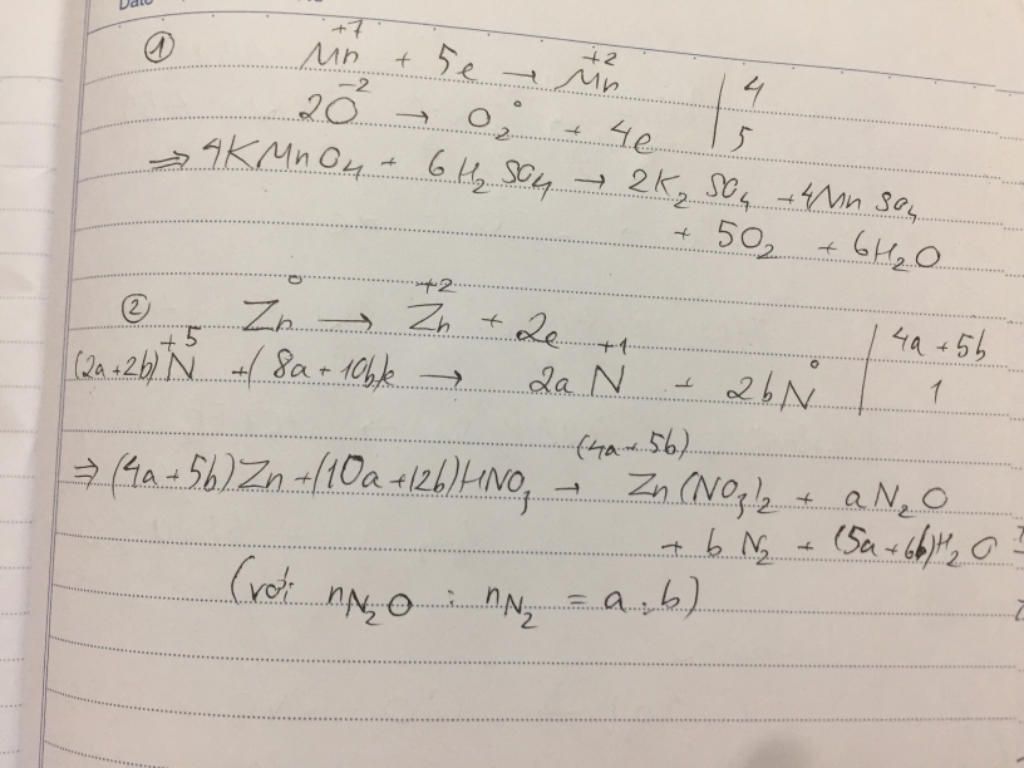 Date
① Mn⁺⁷ + 5e → Mn⁺² | 4
2O⁻² → O₂⁰ + 4e | 5
⇒ 4KMnO₄ + 6H₂SO₄ → 2K₂SO₄ + 4MnSO₄
+ 5O₂ + 6H₂O
② Zn⁰ → Zn⁺² + 2e | 4a + 5b
(2a+2b)N⁺⁵ + (8a + 10b)e → 2aN⁺¹ + 2bN⁰ | 1
⇒ (4a+5b)Zn + (10a+12b)HNO₃ → (4a+5b) Zn(NO₃)₂ + aN₂O
+ bN₂ + (5a+6b)H₂O
(với nN₂O : nN₂ = a:b)